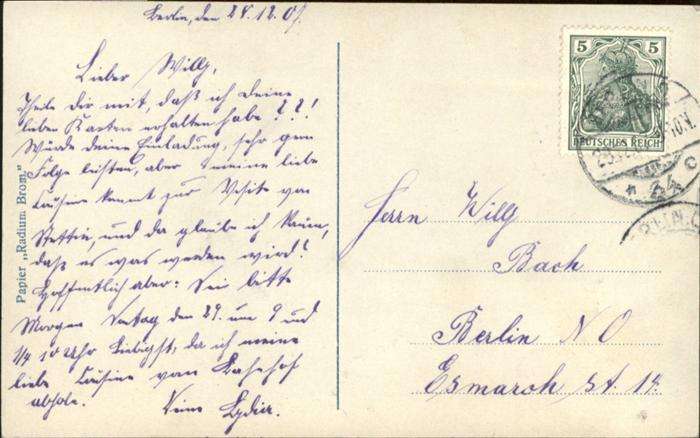 Berlin, den 28.12.07.
Lieber Willy,
Theile dir mit, daß ich deine
lieben Karten erhalten habe ? ? !
Würde deine Einladung, sehr gern
Folge leisten, aber meine liebe
Cousine kommt zur Visite von
Stettin, und da glaube ich kaum,
daß es was werden wird!
Hoffentlich aber: Sei bitte
Morgen den 29. um 9 und
1/4 10 Uhr da ich meine
liebe Cousine vom Bahnhof
abhole.
Deine Lydia.
Papier „Radium Brom."
5 5
DEUTSCHES REICH
Herrn Willy
Bach
Berlin NO
Esmarch St. 18.